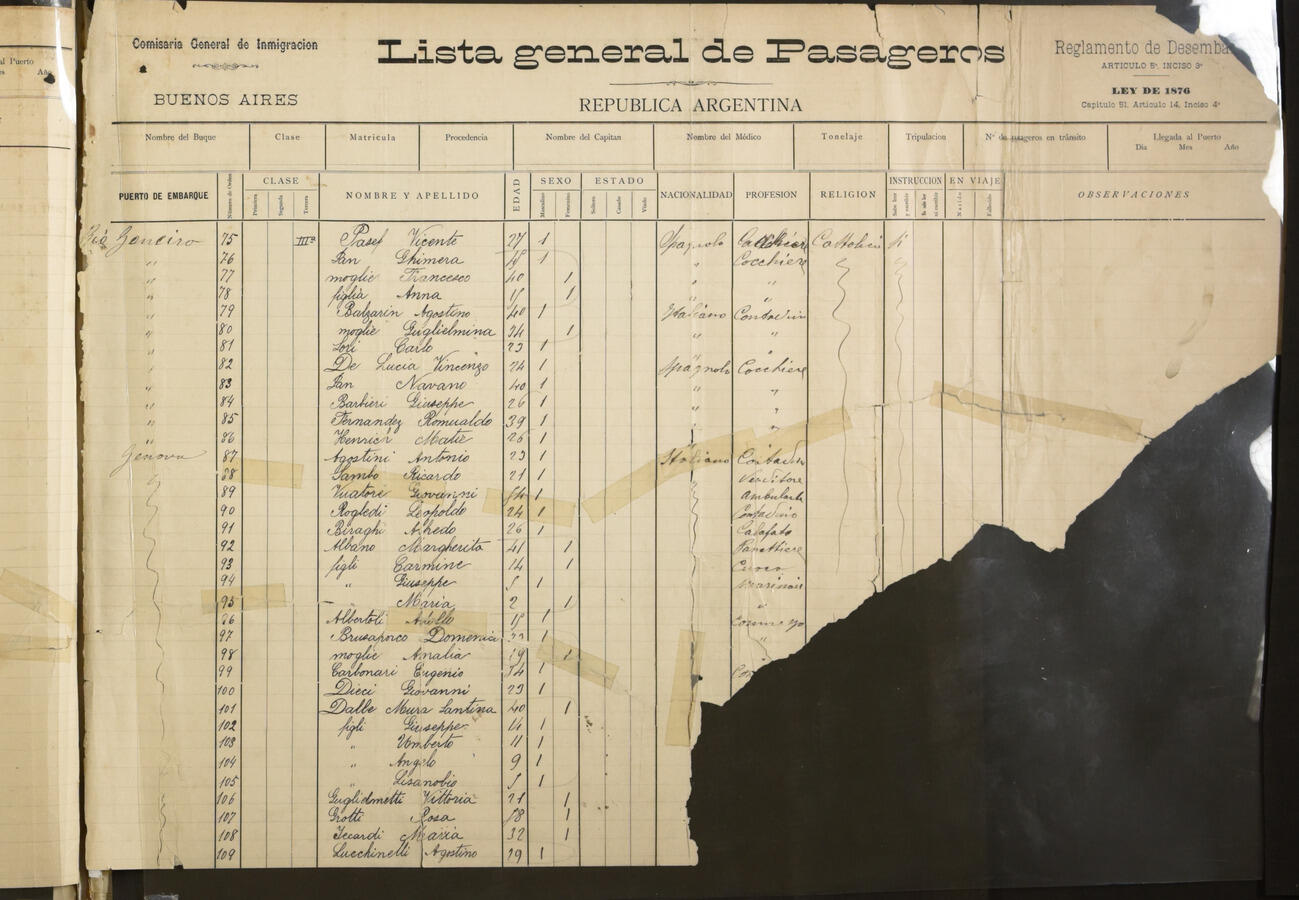 al Puerto
Comisaria General de Inmigracion
BUENOS AIRES
Lista general de Pasageros
REPUBLICA ARGENTINA
Reglamento de Desemba
ARTICULO 5º, INCISO 3º
LEY DE 1876
Capitulo 51, Articulo 14, Inciso 4º
Nombre del Buque Clase Matricula Procedencia Nombre del Capitan Nombre del Médico Tonelaje Tripulacion Nº de pasageros en tránsito Llegada al Puerto
Dia Mes Año
PUERTO DE EMBARQUE Número de Orden CLASE NOMBRE Y APELLIDO EDAD SEXO ESTADO NACIONALIDAD PROFESION RELIGION INSTRUCCION EN VIAJE OBSERVACIONES
Primera Segunda Tercera Masculino Femenino Soltero Casado Viudo Nacidos Fallecidos
Geneiro 75 IIIª Vicente 27 1 Spagnolo Cattolica
" 76 Ghimera 1 " Cocchiere
" 77 moglie Francesco 40 1 " "
" 78 figlia Anna 1 " "
" 79 Balzarin Agostino 40 1 Italiano
" 80 moglie Guglielmina 34 1 " "
" 81 Carlo 23 1 " "
" 82 De Lucia Vincenzo 24 1 Spagnolo Cocchiere
" 83 Navano 40 1 " "
" 84 Barbieri Giuseppe 26 1 " "
" 85 Fernandez Romualdo 39 1 " "
" 86 26 1 " "
Genova 87 Agostini Antonio 23 1 Italiano
88 Sambo Ricardo 21 1 Venditore
89 Giovanni 1 Ambulante
90 Leopoldo 24 1 Contadino
91 Biraghi Alfredo 26 1 Calafato
92 Albano Margherita 41 1 Panettiere
93 figli Carmine 14 1 Cuoco
94 " Giuseppe 1
95 " Maria 2 1 "
96 Albertoli 1
97 Brusaporco Domenica 1 "
98 moglie Amalia 1
99 Carbonari Eugenio 1
100 Dieci Giovanni 29 1
101 Dalle Mura Santina 40 1
102 figli Giuseppe 1
103 " Umberto 11 1
104 " Angelo 9 1
105 " Lisanobio 1
106 Guglielmetti Vittoria 21 1
107 Grotti Rosa 1
108 Iccardi Maria 32 1
109 Lucchinelli Agostino 29 1